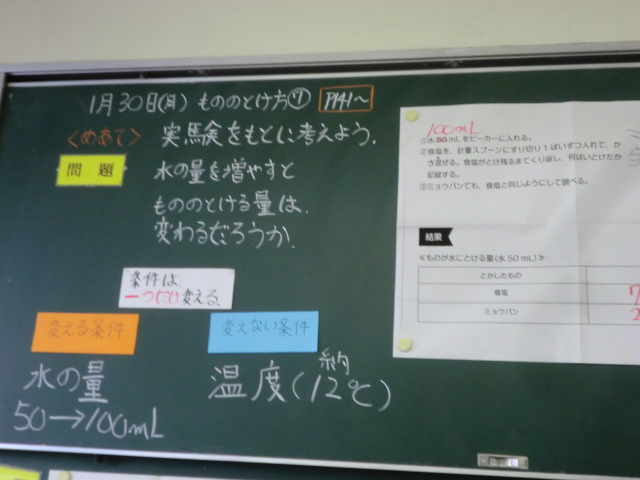 1月30日(月) もののとけ方⑦ P141〜
<めあて> 実験をもとに考えよう.
問題
水の量を増やすと
もののとける量は.
変わるだろうか.
条件は.
一つだけ変える.
変える条件
水の量
50→100mL
変えない条件
温度(約12℃)
100mL
①水50mLをビーカーに入れる。
②食塩を、計量スプーンにすり切り1ぱいずつ入れて、か
き混ぜる。食塩がとけ残るまでくり返し、何ばいとけたか
記録する。
③ミョウバンでも、食塩と同じようにして調べる。
結果
≪ものが水にとける量(水50mL)≫
とかしたもの
食塩
ミョウバン